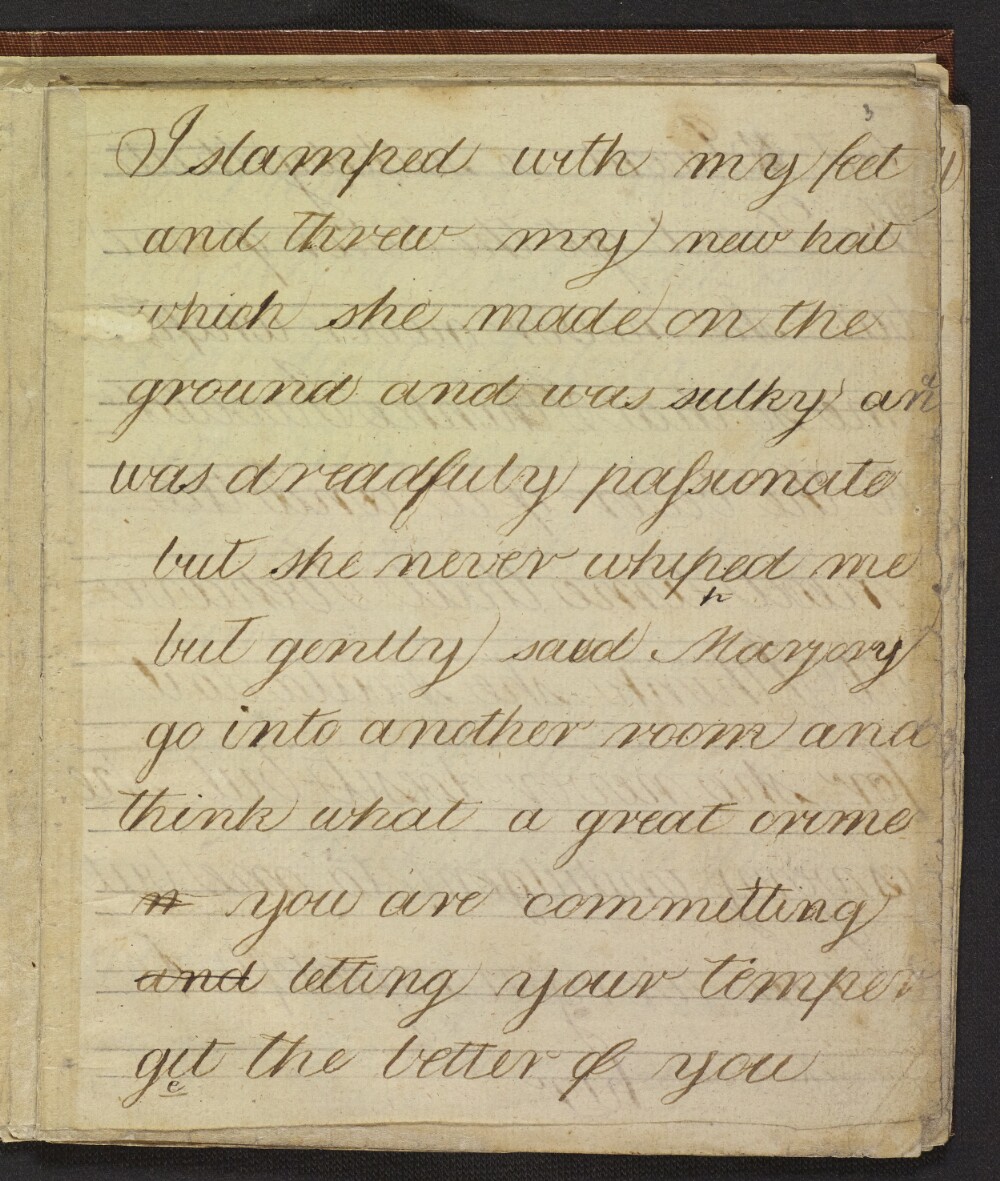 3
I stamped with my feet
and threw my new hat
which she made on the
ground and was sulky and
was dreadfuly paſsionate
but she never whiped me
p
but gently said Marjory
go into another room and
think what a great crime
n you are committing
and letting your temper
git the better of you
e